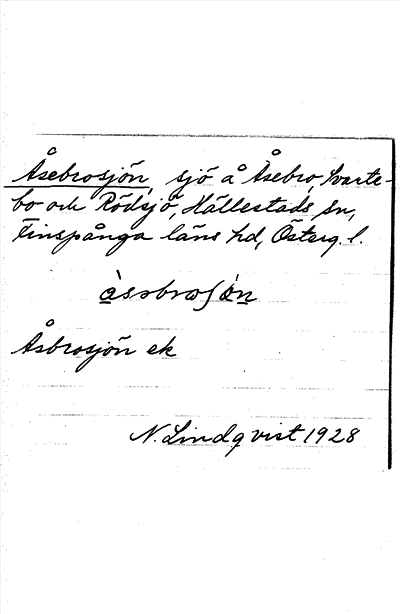 Åsebrosjön, sjö å Åsebro, Svarte-
bo och Rödsjö, Hällestads sn,
Finspånga läns hd, Österg. l.
Åsbrosjön ek
N. Lindqvist 1928